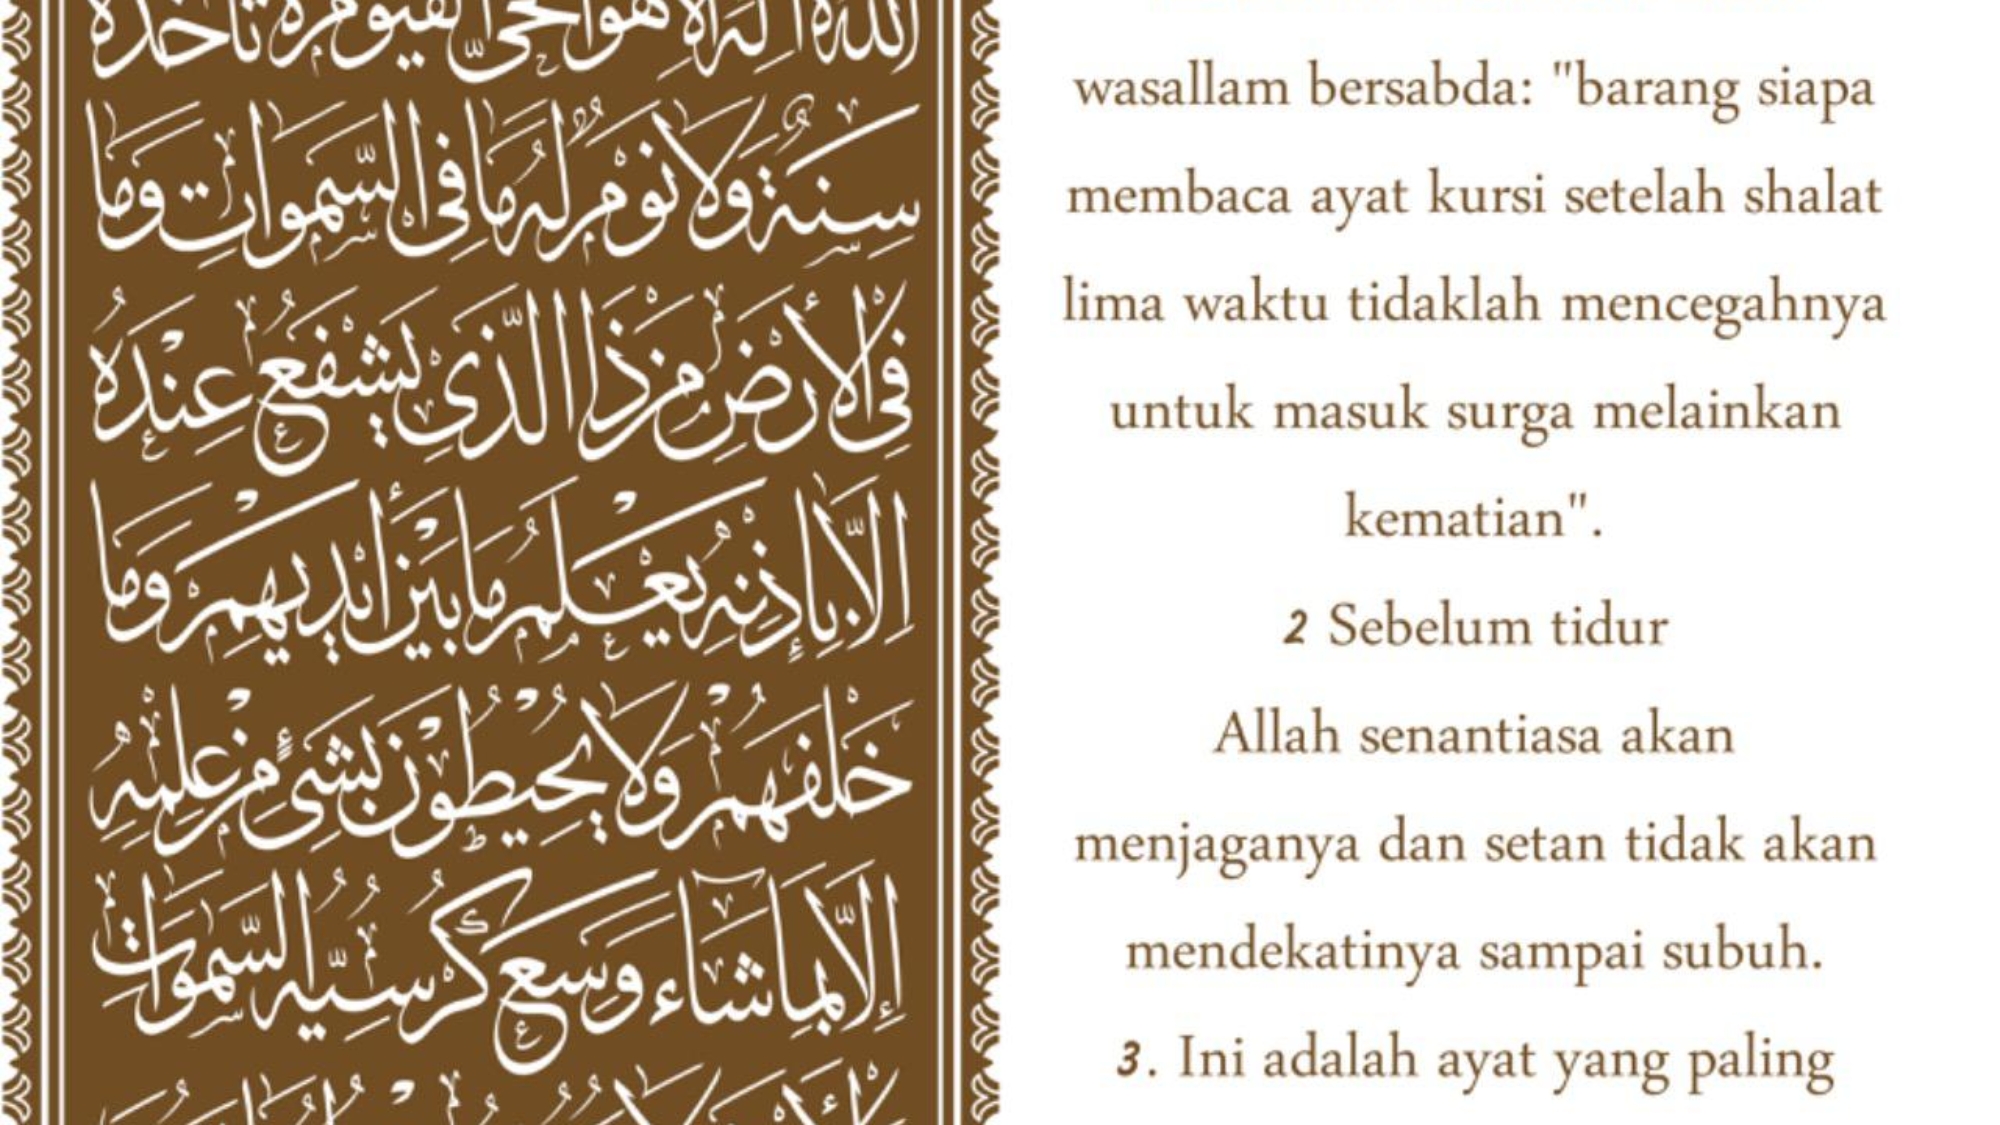 الله لا إله إلا هو الحي القيوم لا تأخذه
سِنَةٌ وَلَا نَوْمٌ لَهُ مَا فِي السَّمَوَاتِ وَمَا
فِي الْأَرْضِ مَنْ ذَا الَّذِي يَشْفَعُ عِنْدَهُ
إِلَّا بِإِذْنِهِ يَعْلَمُ مَا بَيْنَ أَيْدِيهِمْ وَمَا
خَلْفَهُمْ وَلَا يُحِيطُونَ بِشَيْءٍ مِنْ عِلْمِهِ
إِلَّا بِمَا شَاءَ وَسِعَ كُرْسِيُّهُ السَّمَوَاتِ
wasallam bersabda: "barang siapa
membaca ayat kursi setelah shalat
lima waktu tidaklah mencegahnya
untuk masuk surga melainkan
kematian".
2 Sebelum tidur
Allah senantiasa akan
menjaganya dan setan tidak akan
mendekatinya sampai subuh.
3. Ini adalah ayat yang paling